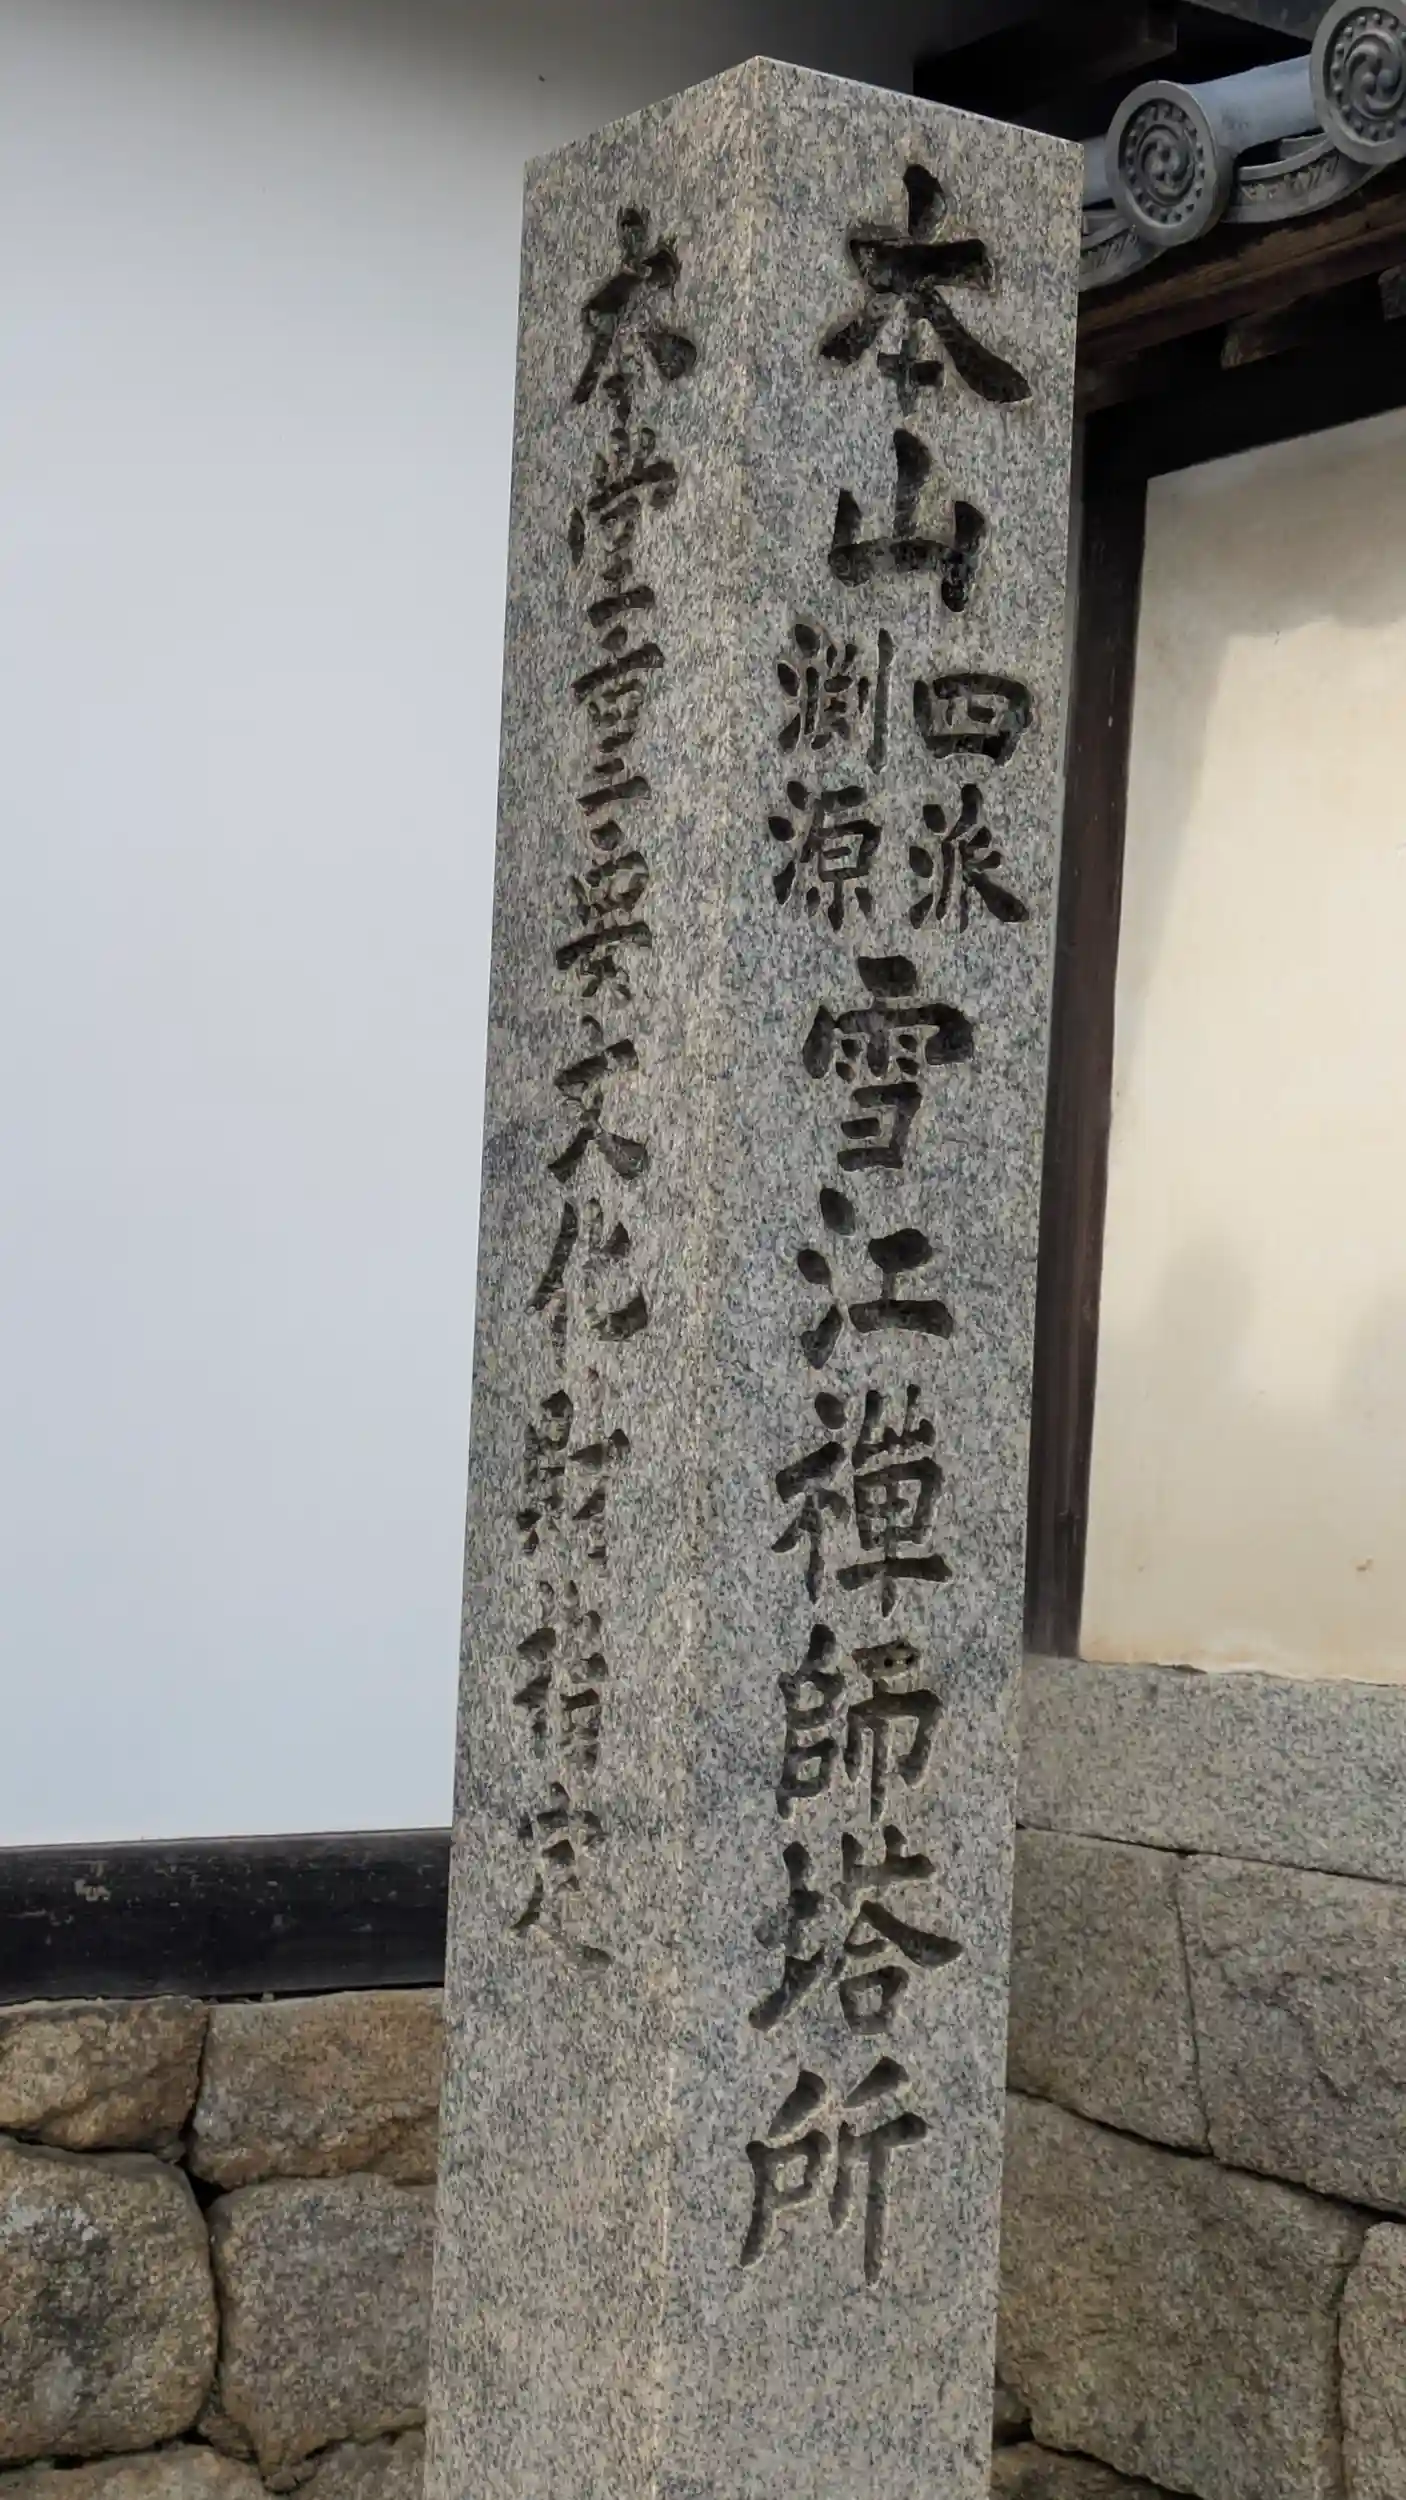 本山四派渕源雪江禅師塔所
本堂重要文化財指定